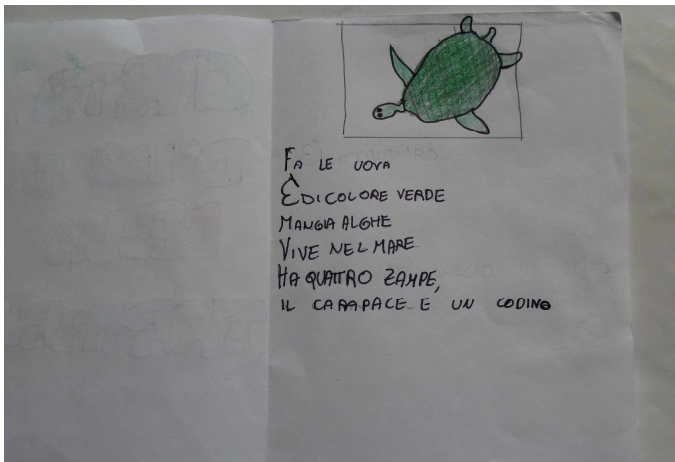 FA LE UOVA
È DI COLORE VERDE
MANGIA ALGHE
VIVE NEL MARE
HA QUATTRO ZAMPE,
IL CARAPACE E UN CODINO